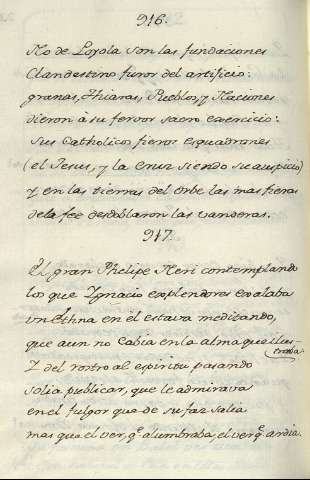 916.
No de Loyola son las fundaciones
Clandestino furor del artificio:
granas, Thiaras, Pueblos, y Naciones
dieron à su fervor sacro exercicio:
Sus Catholicos fieros esquadrones
(el Jesus, y la Cruz siendo su auspicio)
y en las tierras del Orbe las mas fieras
de la fee desdoblaron las vanderas.
917.
El gran Phelipe Neri contemplando
los que Ygnacio explendores exalaba
vn Ethna en él estava meditando,
que aun no cabia en la alma que illus-
traba.
Y del rostro al espiritu pasando
solia publicar, que le admirava
en el fulgor que de su faz salia
mas que el ver, q.e alumbraba, el ver q.e ardia.